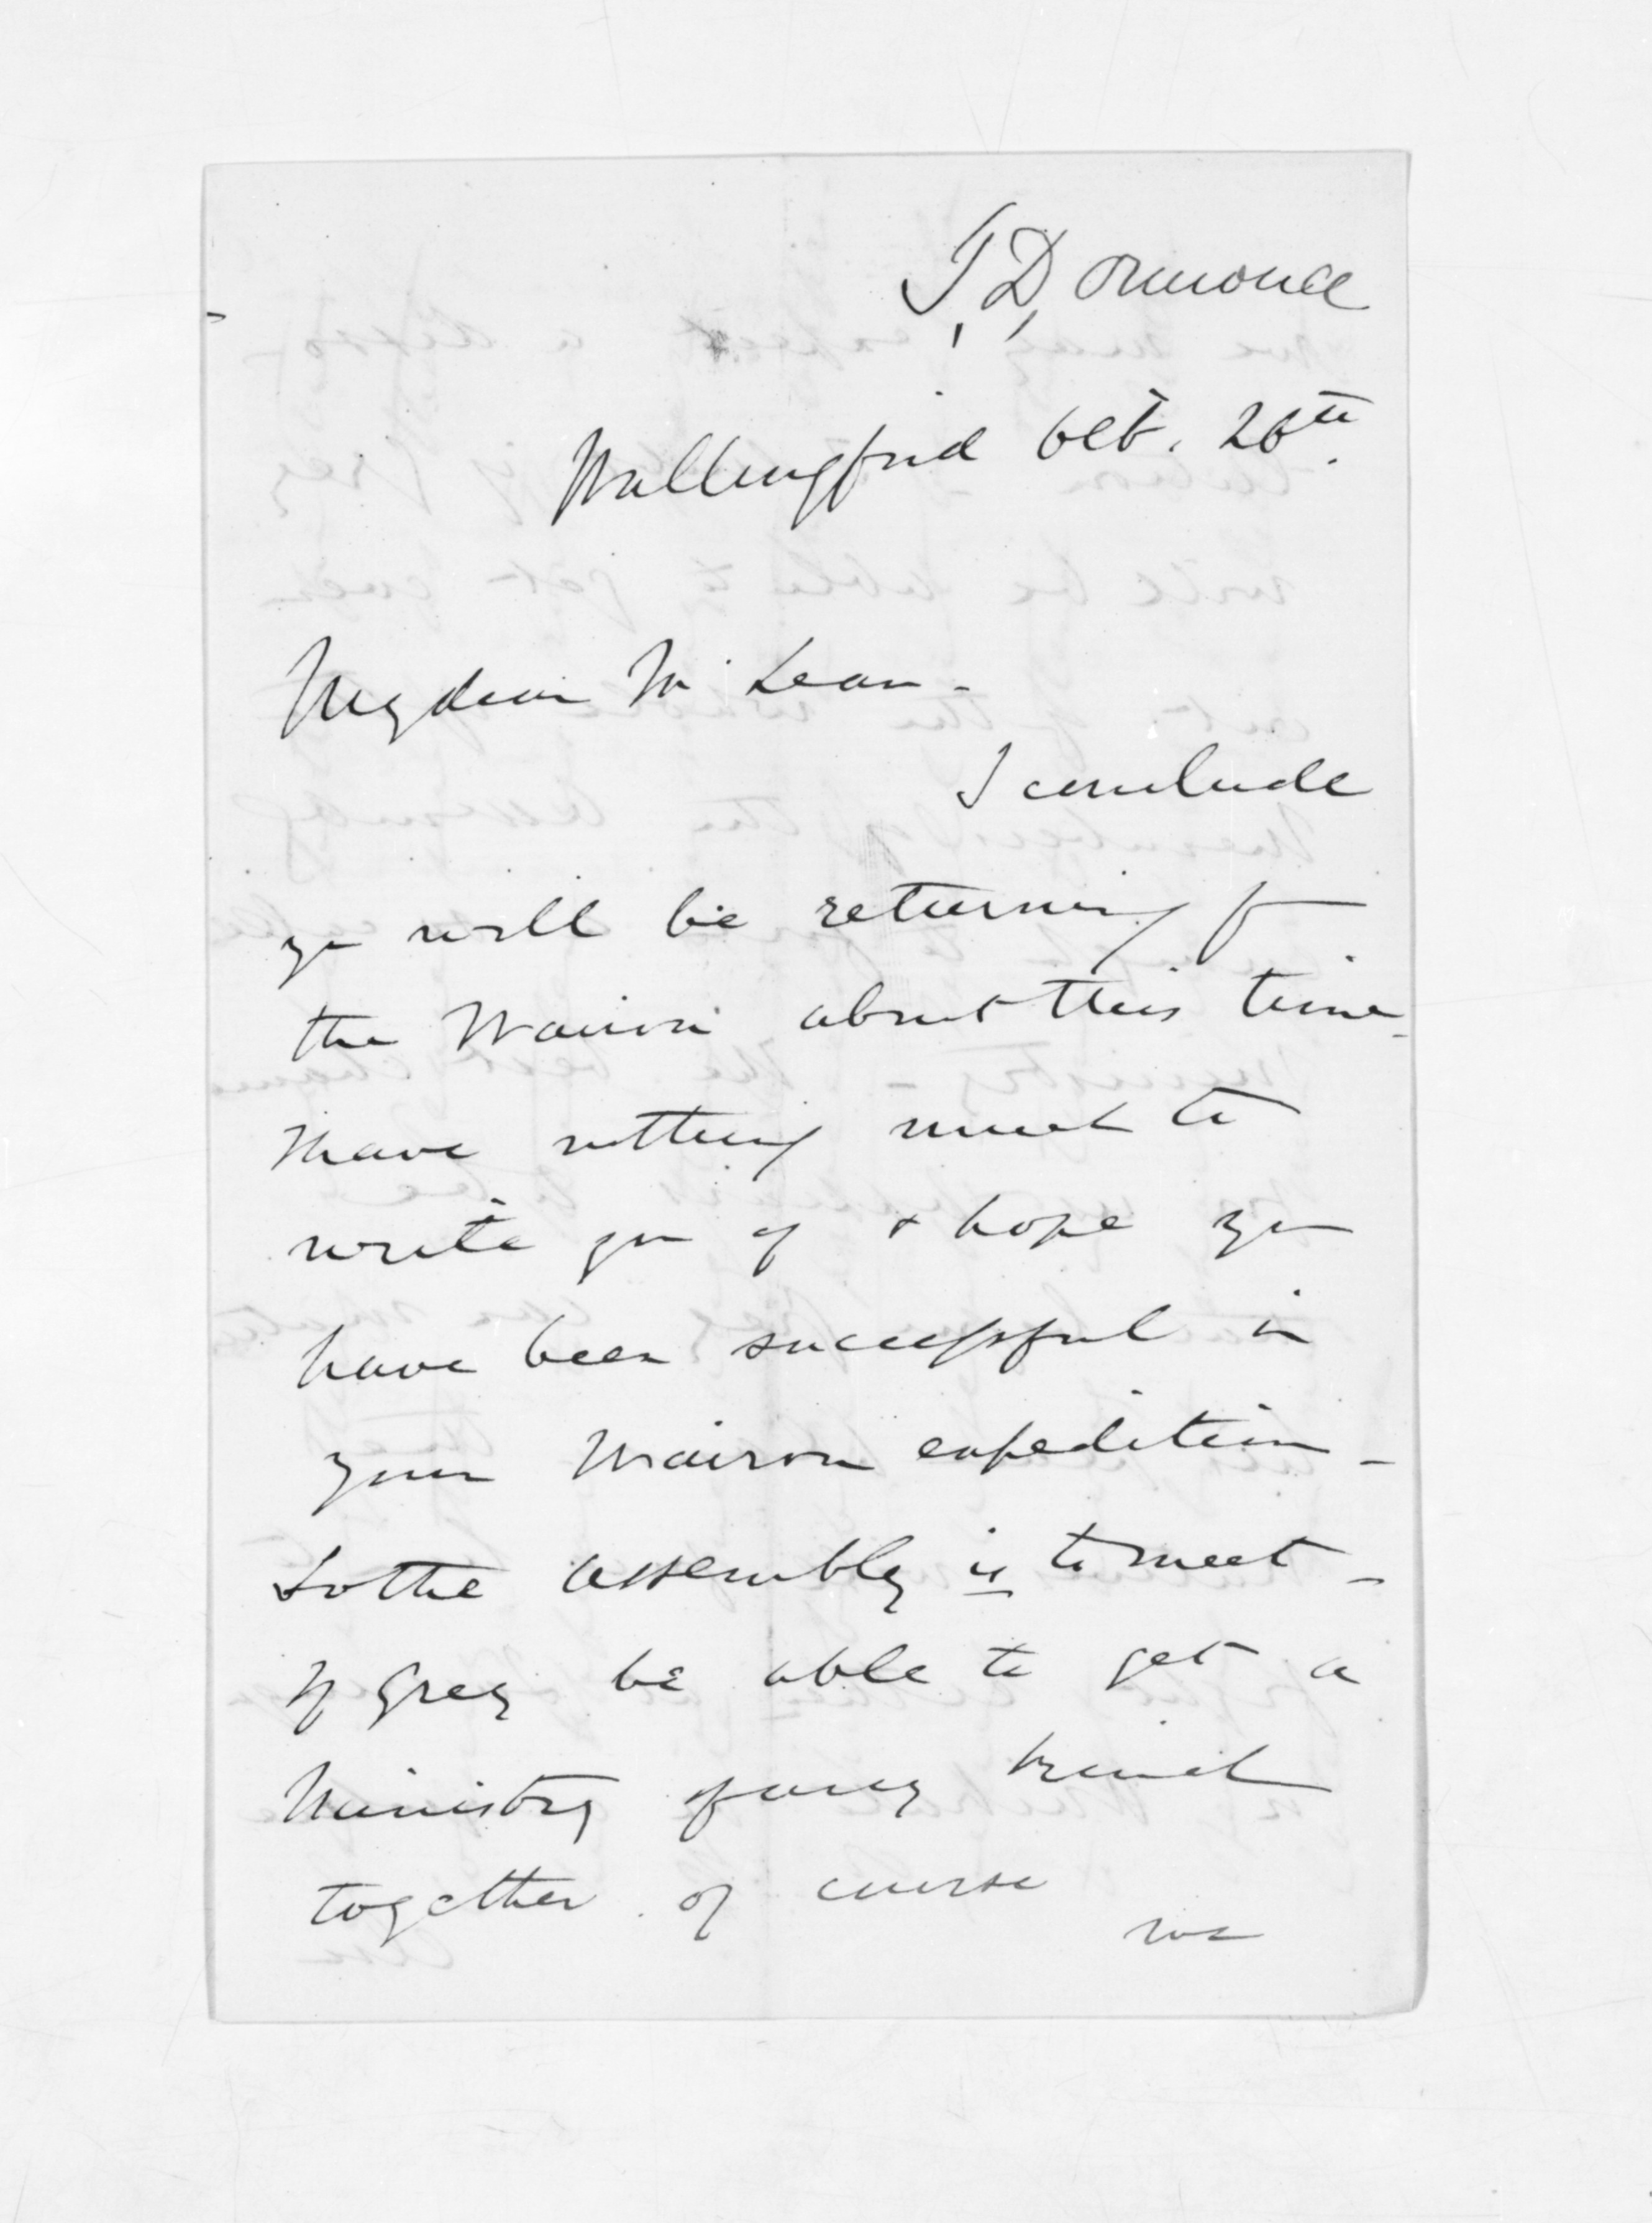 J, D, Ormond
Wallingford Oct. 26th.
My dear McLean -
I conclude
you will be returning fm
the Wairoa about this time -
I have nothing much to
write you of & hope you
have been successful in
your Wairoa expedition -
So the assembly is to meet -
If Grey be able to get a
Ministry of any kind
together of course
we